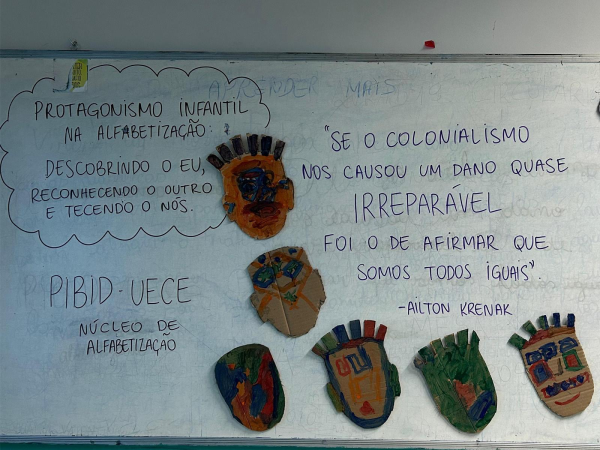 APRENDER MAIS
PROTAGONISMO INFANTIL
NA ALFABETIZAÇÃO:
DESCOBRINDO O EU,
RECONHECENDO O OUTRO
E TECENDO O NÓS.
PIBID-UECE
NÚCLEO DE
ALFABETIZAÇÃO
"SE O COLONIALISMO
NOS CAUSOU UM DANO QUASE
IRREPARÁVEL
FOI O DE AFIRMAR QUE
SOMOS TODOS IGUAIS".
-AILTON KRENAK